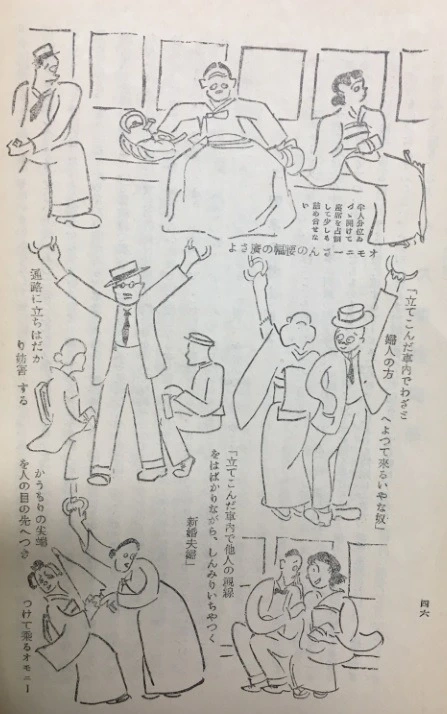 半人分位ゐ
づゝ開けて
座席を占領
して少しも
詰め合せな
い
オモニーさんの腰幅の廣さよ
「立てこんだ車内でわざさ
婦人の方
へよつて來るいやな奴」
通路に立ちはだか
り妨害する
「立てこんだ車内で他人の視線
をはばかりながら、しんみりいちやつく
新婚夫婦」
かうもりの尖端
を人の目の先へつき
つけて乘るオモニー
四六